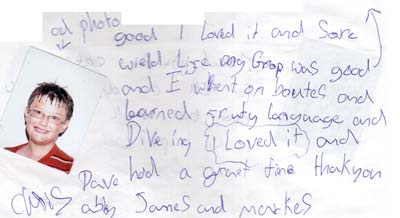 od photo
good I loved it and Sore
was wield Lige any Grop was good
and I whent on boutes and
learned gruty language and
Diveing I Loved it and
had a graet time thakyou
CHRIS Dave abby James and markes